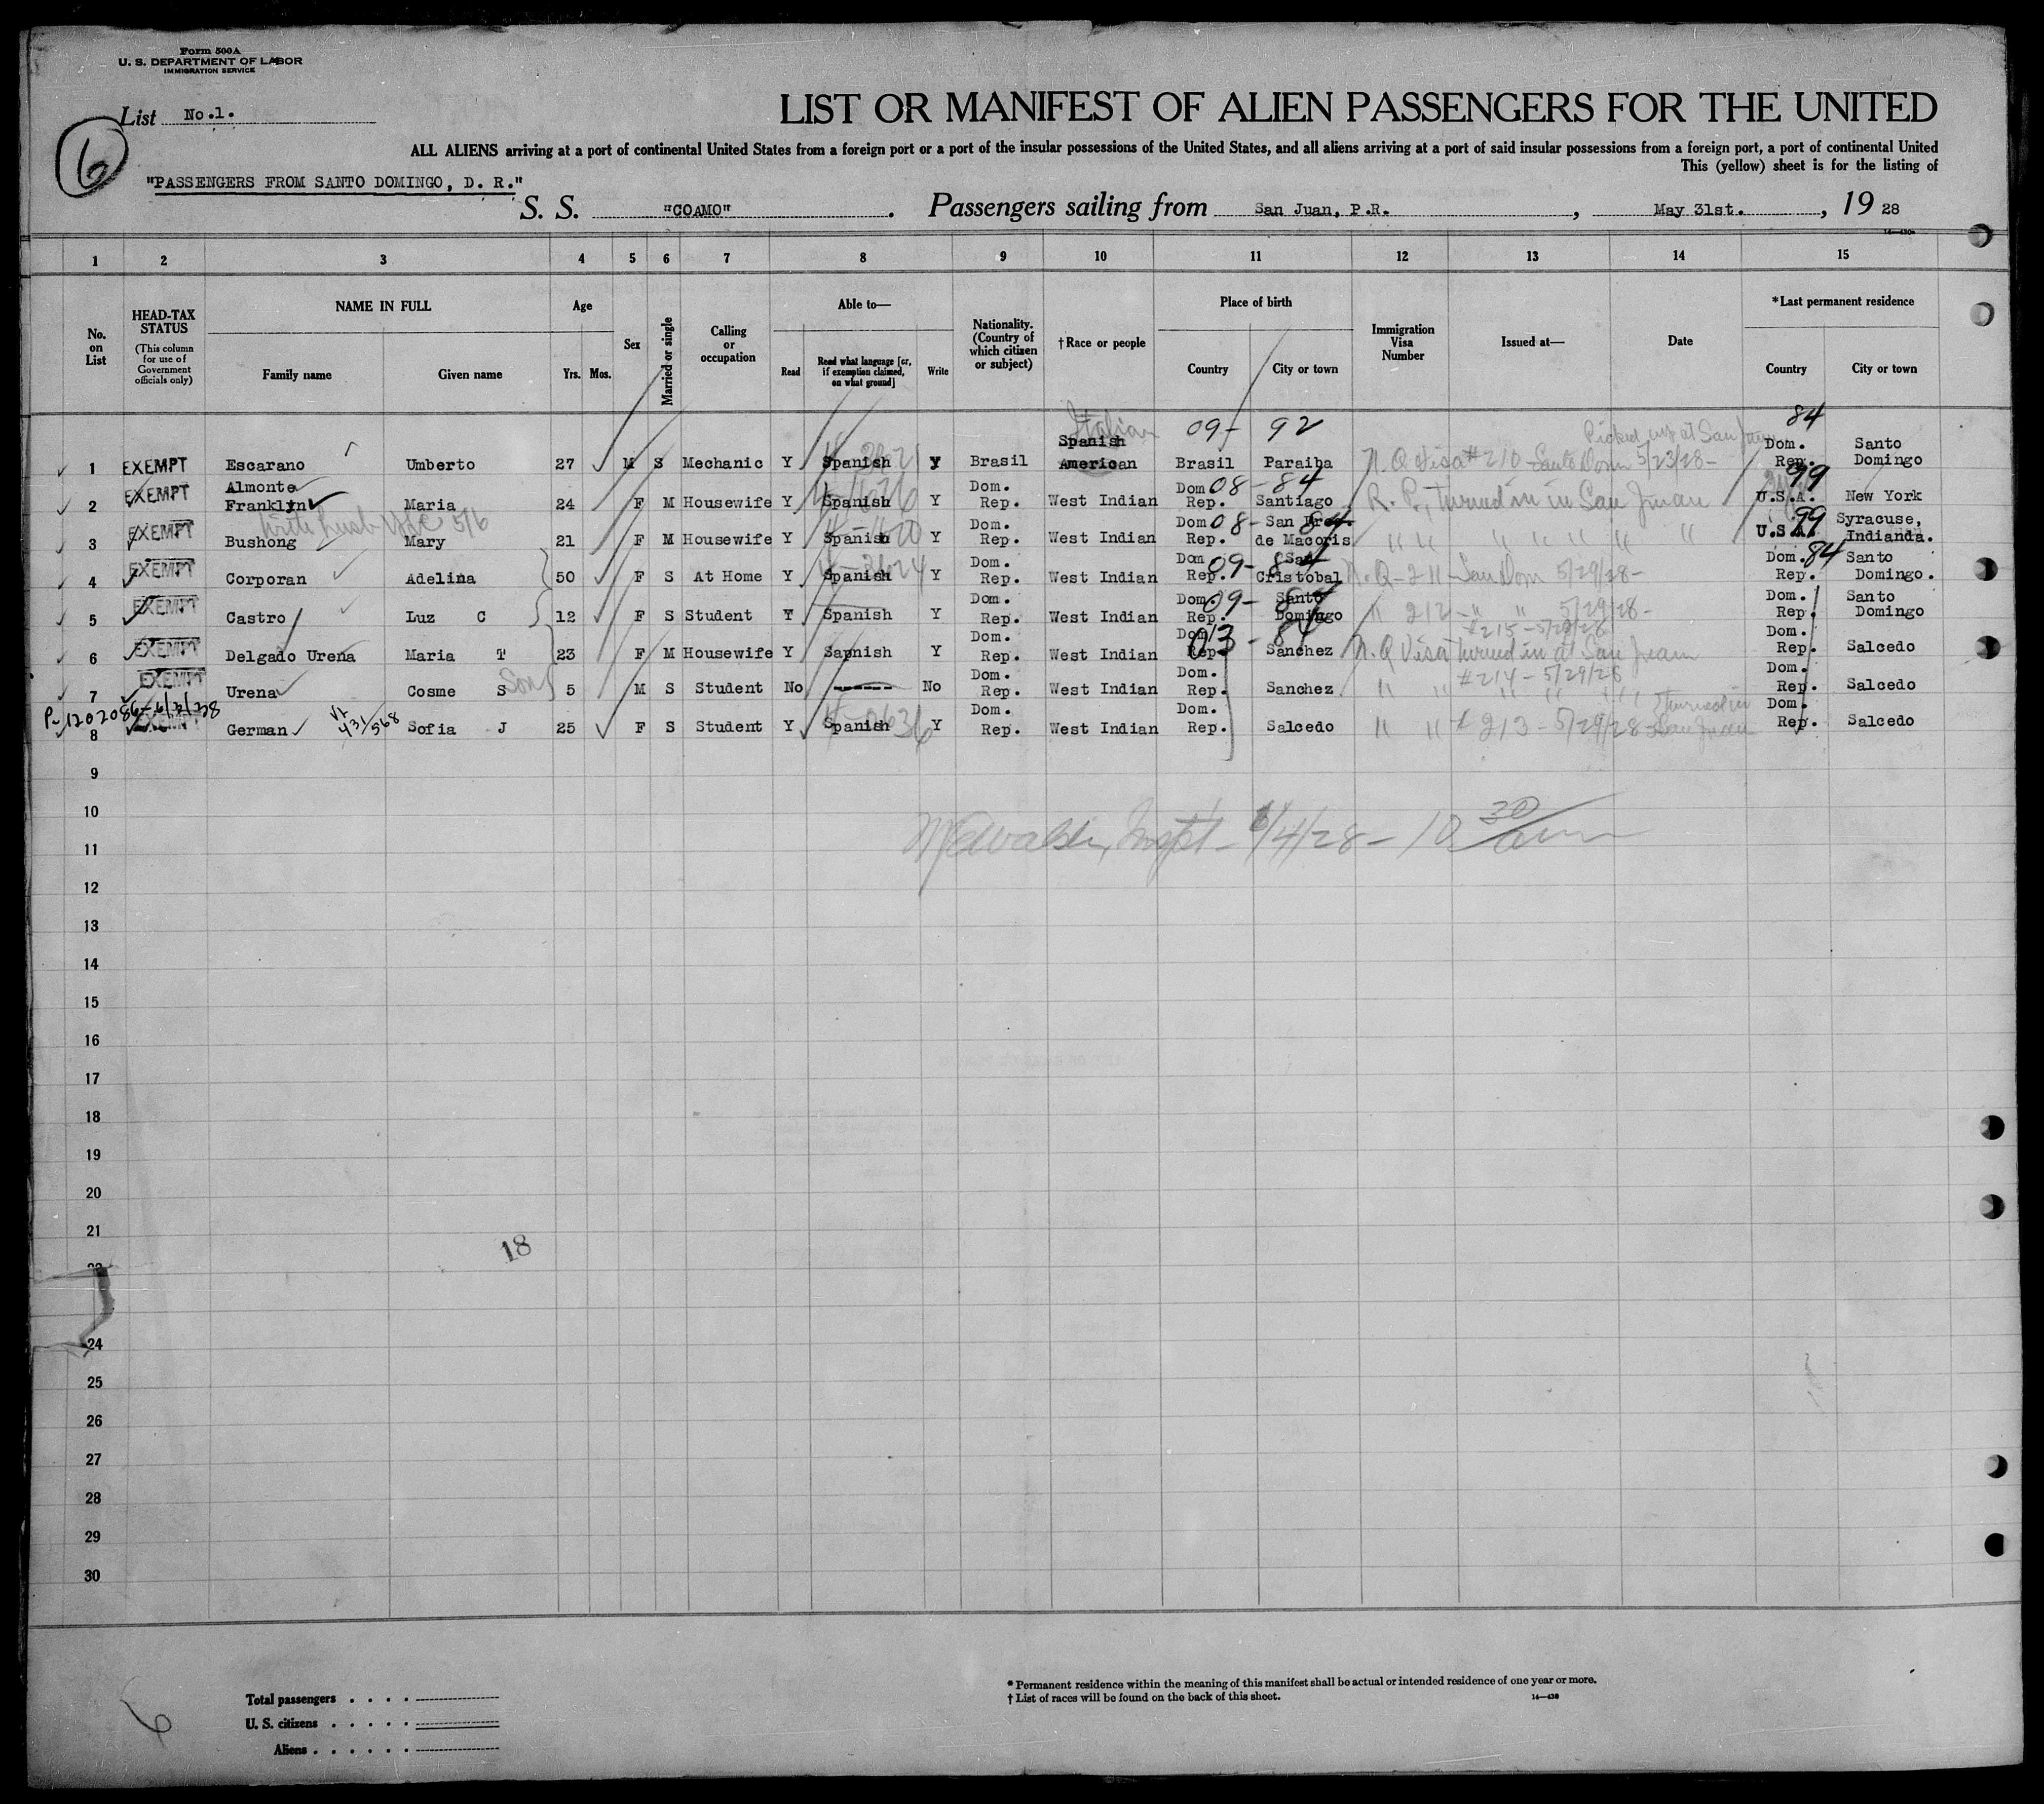 Form 500A
U. S. DEPARTMENT OF LABOR
IMMIGRATION SERVICE
List No.1.
6
LIST OR MANIFEST OF ALIEN PASSENGERS FOR THE UNITED
ALL ALIENS arriving at a port of continental United States from a foreign port or a port of the insular possessions of the United States, and all aliens arriving at a port of said insular possessions from a foreign port, a port of continental United
This (yellow) sheet is for the listing of
"PASSENGERS FROM SANTO DOMINGO, D. R."
S. S. "COAMO" . Passengers sailing from San Juan, P.R. , May 31st. , 19 28
1 2 3 4 5 6 7 8 9 10 11 12 13 14 15
No. on List
HEAD-TAX STATUS
(This column for use of Government officials only)
NAME IN FULL
Family name Given name
Age
Yrs. Mos.
Sex
Married or single
Calling or occupation
Able to—
Read
Read what language [or, if exemption claimed, on what ground]
Write
Nationality. (Country of which citizen or subject)
†Race or people
Place of birth
Country City or town
Immigration Visa Number
Issued at—
Date
*Last permanent residence
Country City or town
Italian 09- 92 Picked up at San Juan 84
1 EXEMPT Escarano Umberto 27 M S Mechanic Y Spanish Y Brasil Spanish American Brasil Paraiba N.Q Visa #210 Santo Dom 5/23/28 - Dom. Rep. Santo Domingo
2 EXEMPT Almonte Franklyn Maria 24 F M Housewife Y Spanish Y Dom. Rep. West Indian Dom Rep. 08-84 Santiago R.P., turned in in San Juan 99 U.S.A. New York
3 EXEMPT Bushong Mary 21 F M Housewife Y Spanish Y Dom. Rep. West Indian Dom Rep. 08-84 de Macoris " " " " " " " 99 U.S.A. Syracuse, Indianda.
4 EXEMPT Corporan Adelina 50 F S At Home Y Spanish Y Dom. Rep. West Indian Dom Rep. 09-84 San Cristobal N.Q-211-San Dom 5/29/28- Dom. Rep. 84 Santo Domingo.
5 EXEMPT Castro Luz C 12 F S Student Y Spanish Y Dom. Rep. West Indian Dom. Rep. 09-84 Santo Domingo " 212-" " 5/29/28- Dom. Rep. Santo Domingo
#215-5/29/28
6 EXEMPT Delgado Urena Maria T 23 F M Housewife Y Sapnish Y Dom. Rep. West Indian Dom Rep. 03-84 Sanchez N.Q Visa turned in at San Juan Dom. Rep. Salcedo
#214-5/29/28
7 EXEMPT Urena Cosme S Son 5 M S Student No ------ No Dom. Rep. West Indian Dom. Rep. Sanchez " " " " " Dom. Rep. Salcedo
431/568
8 EXEMPT German Sofia J 25 F S Student Y Spanish Y Dom. Rep. West Indian Dom. Rep. Salcedo " " #213-5/29/28 turned in San Juan Dom. Rep. Salcedo
9
10
11
12
13
14
15
16
17
18
19
20
21
18
24
25
26
27
28
29
30
6
Total passengers . . . .
U. S. citizens . . . . .
Aliens . . . . . .
* Permanent residence within the meaning of this manifest shall be actual or intended residence of one year or more.
† List of races will be found on the back of this sheet.
14—430